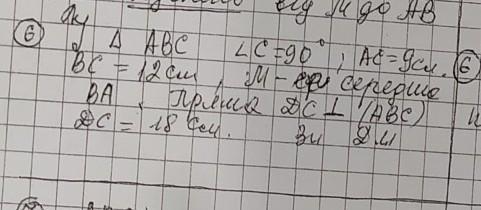 від М до АВ
6 У Δ ABC ∠C=90°, AC=9см. 6
BC = 12 см, М - середина
ВА. Пряма DC⊥(ABC)
DC = 18 см. Зн DM